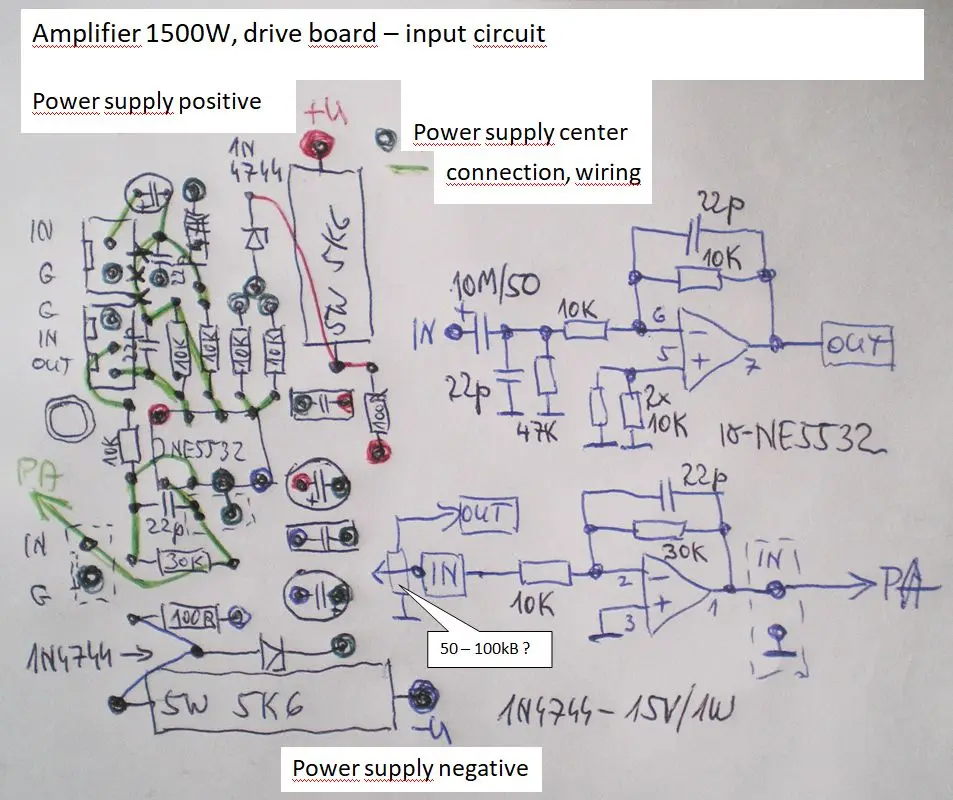 Amplifier 1500W, drive board – input circuit
Power supply positive
+U
Power supply center
connection, wiring
1N
4744
5W 5K6
IN
G
G
IN
OUT
47K
22p
22p
10K
10K
10K
10K
100R
10K
NE5532
PA
22p
30K
IN
G
100R
1N4744
5W 5K6
-U
Power supply negative
22p
10K
10M/50
10K
IN
+
6
-
5
+
7
OUT
22p
47K
2x
10K
IO-NE5532
22p
OUT
30K
IN
10K
2
-
3
+
1
IN
PA
50 – 100kB ?
1N4744 - 15V/1W